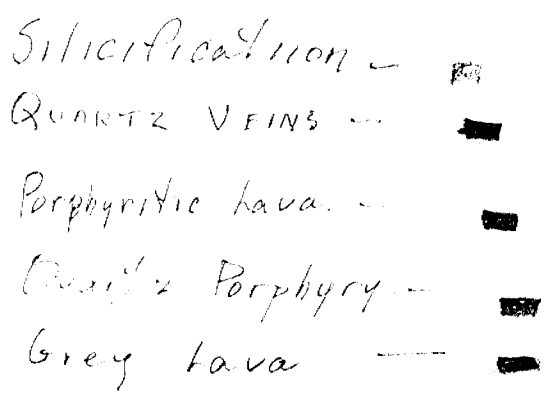 Silicification –
QUARTZ VEINS –
Porphyritic Lava. –
Quartz Porphyry –
Grey Lava –